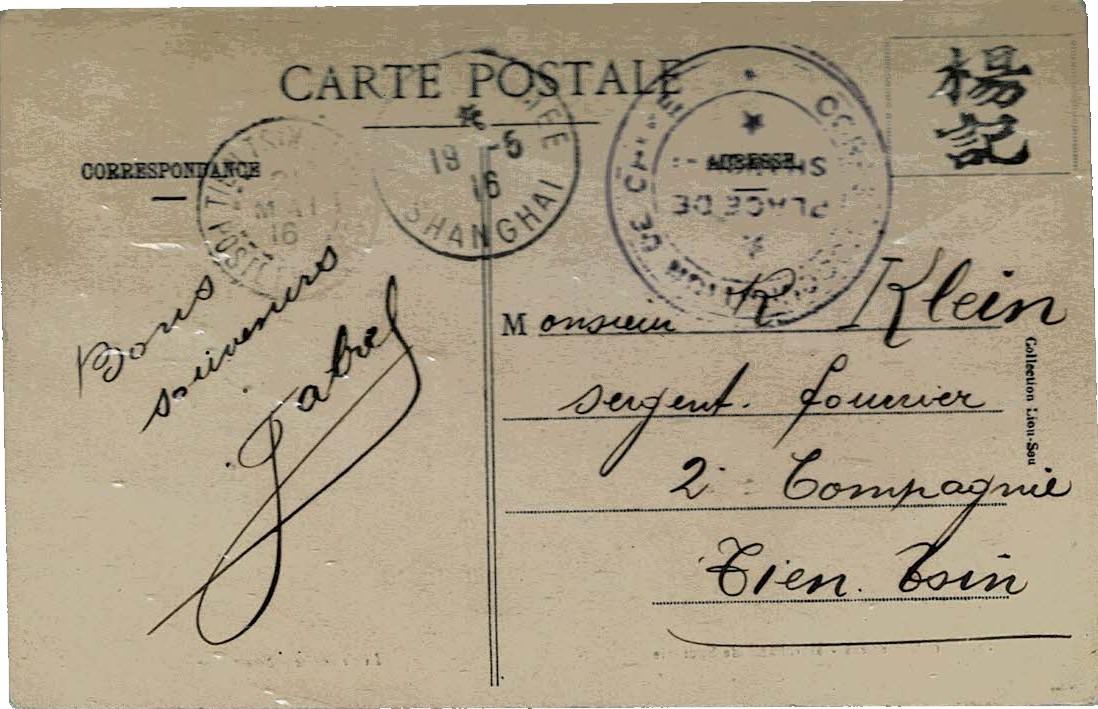 CARTE POSTALE
楊記
CORRESPONDANCE
ADRESSE
TIENTSIN
MAI
16
POSTE
19 -5
16
SHANGHAI
PLACE DE
Bons
souvenirs
Monsieur R Klein
sergent. fourrier
2e Compagnie
Tien. Tsin
Collection Liou-Seu